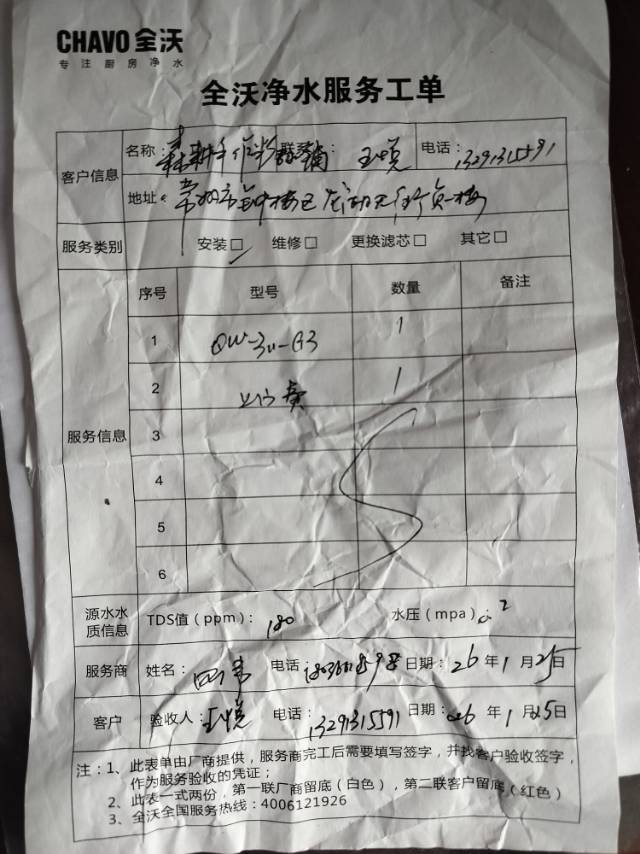 CHAVO 全沃
专注厨房净水
全沃净水服务工单
客户信息
名称: 联系 王悦 电话: 13291315591
地址: 常州市钟楼区
服务类别 安装□ ✓ 维修□ 更换滤芯□ 其它□
服务信息
序号 型号 数量 备注
1 QW-3u-G3 1
2 1
3
4
5
6
源水水质信息 TDS值(ppm): 180 水压(mpa) 0.2
服务商 姓名: 电话 日期: 26年1月25日
客户 验收人: 王悦 电话: 13291315591 日期: 026年1月25日
注: 1、此表单由厂商提供,服务商完工后需要填写签字,并找客户验收签字,
作为服务验收的凭证;
2、此表一式两份,第一联厂商留底(白色),第二联客户留底(红色)
3、全沃全国服务热线:4006121926